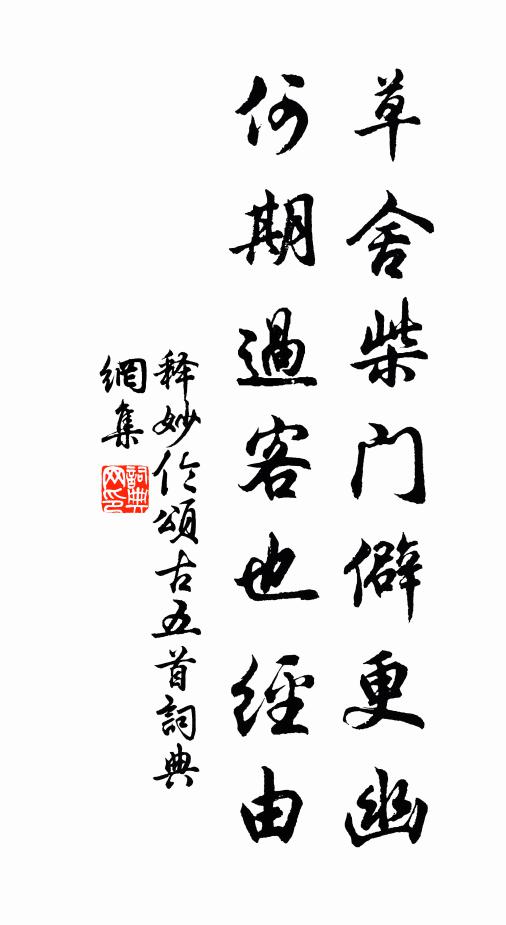 草舍柴门僻更幽
何期過客也經由
释妙伦頌古五首詞典
網集
詞典网印